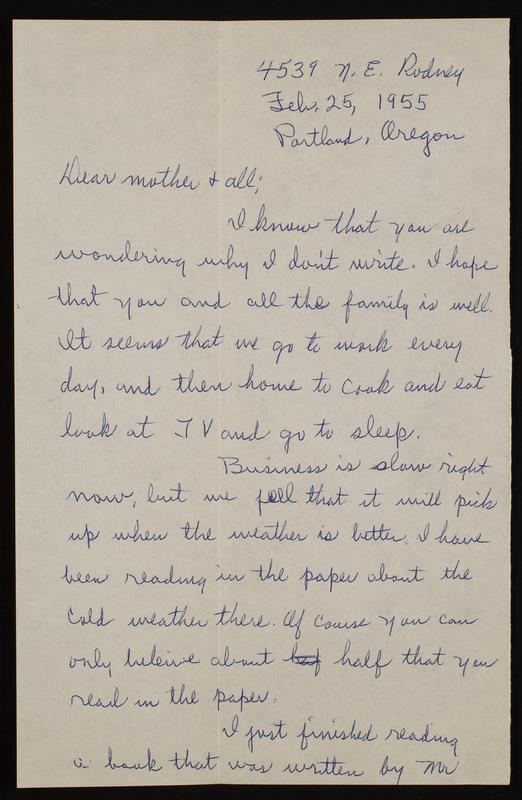 4539 N. E. Rodney
Feb. 25, 1955
Portland, Oregon
Dear mother & all;
I know that you are
wondering why I don't write. I hope
that you and all the family is well.
It seems that we go to work every
day, and then home to cook and eat
look at TV and go to sleep.
Business is slow right
now, but we feel that it will pick
up when the weather is better. I have
been reading in the paper about the
cold weather there. Of course you can
only beleive about half that you
read in the paper.
I just finished reading
a book that was written by Mr